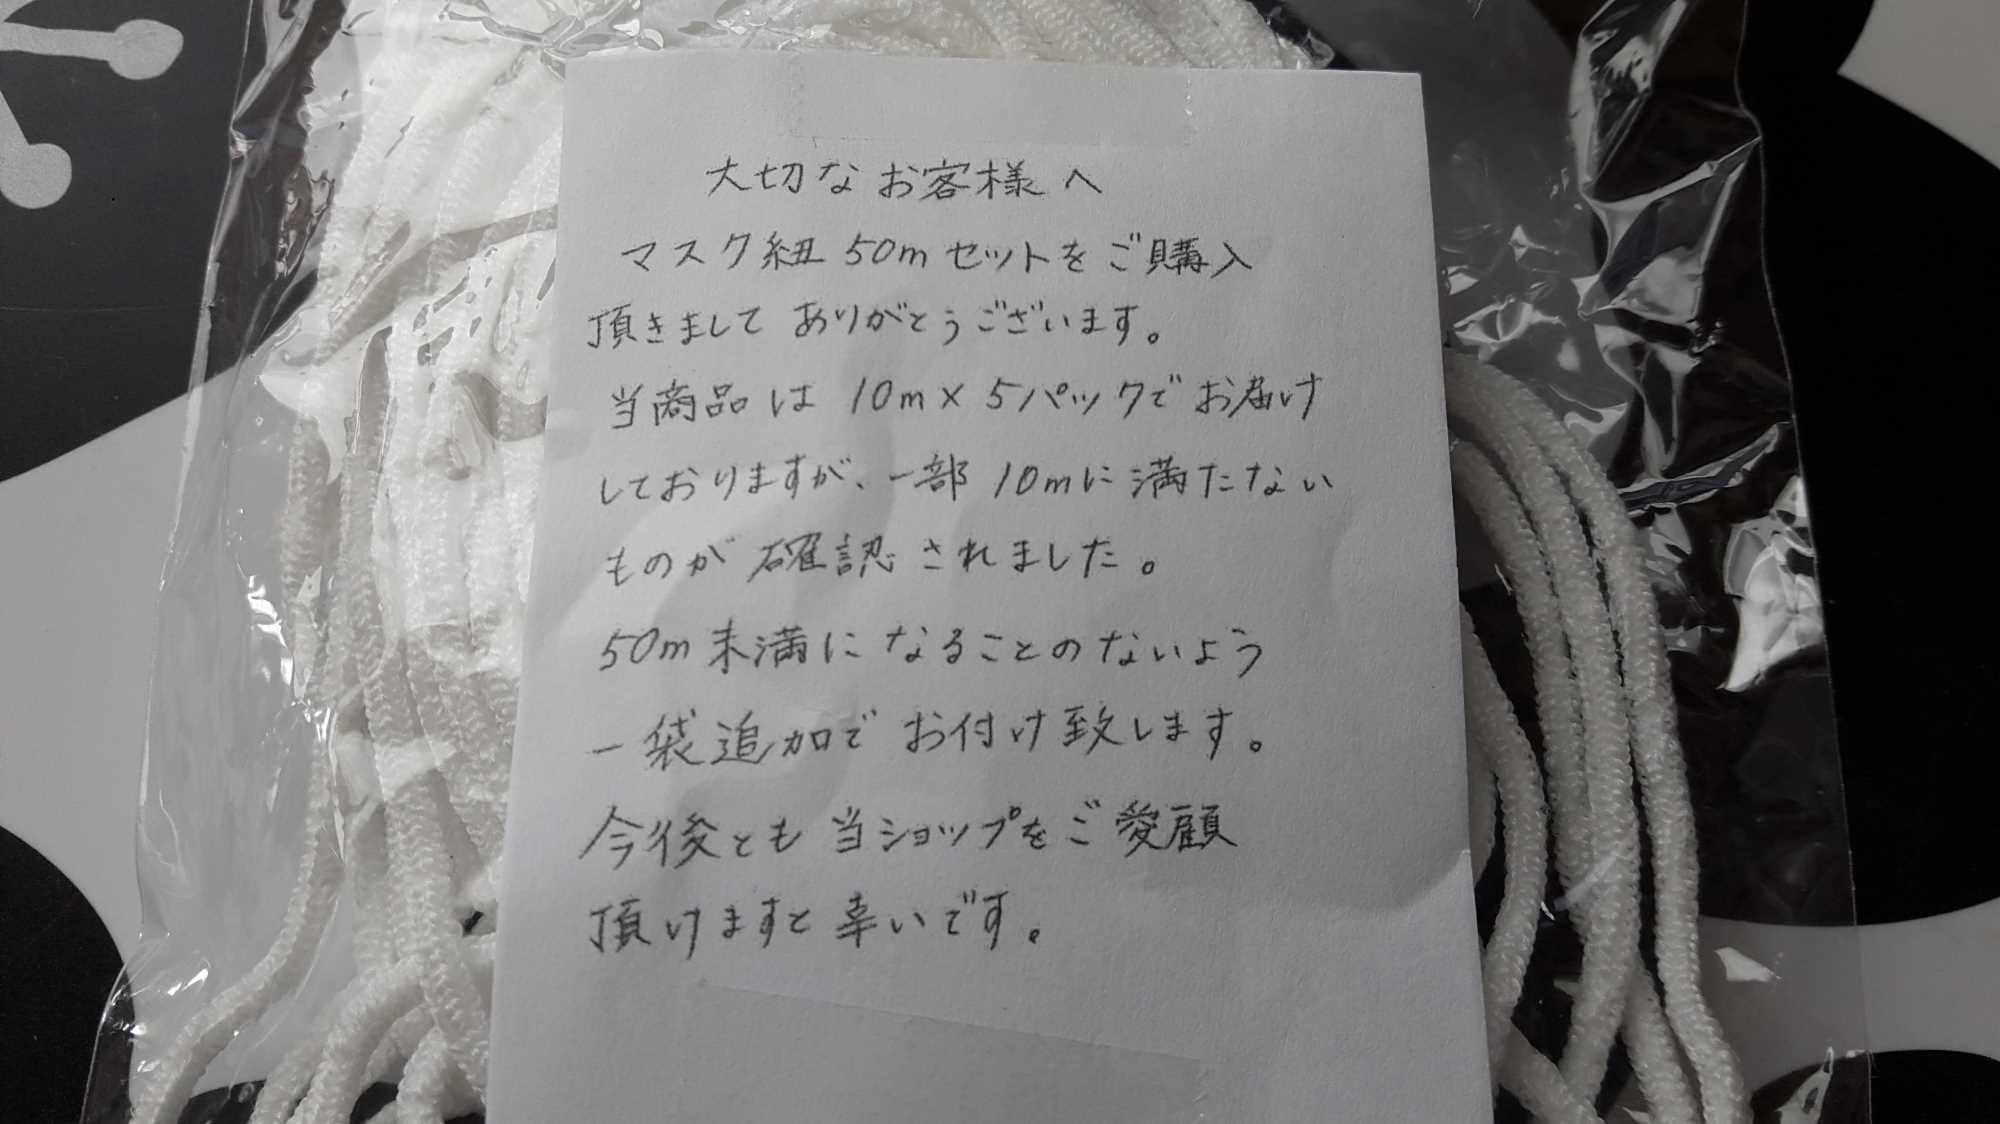 大切なお客様へ
マスク紐50mセットをご購入
頂きまして ありがとうございます。
当商品は 10m×5パックでお届け
しておりますが、一部 10mに満たない
ものが 確認されました。
50m未満になることのないよう
一袋追加でお付け致します。
今後とも 当ショップをご愛顧
頂けますと幸いです。